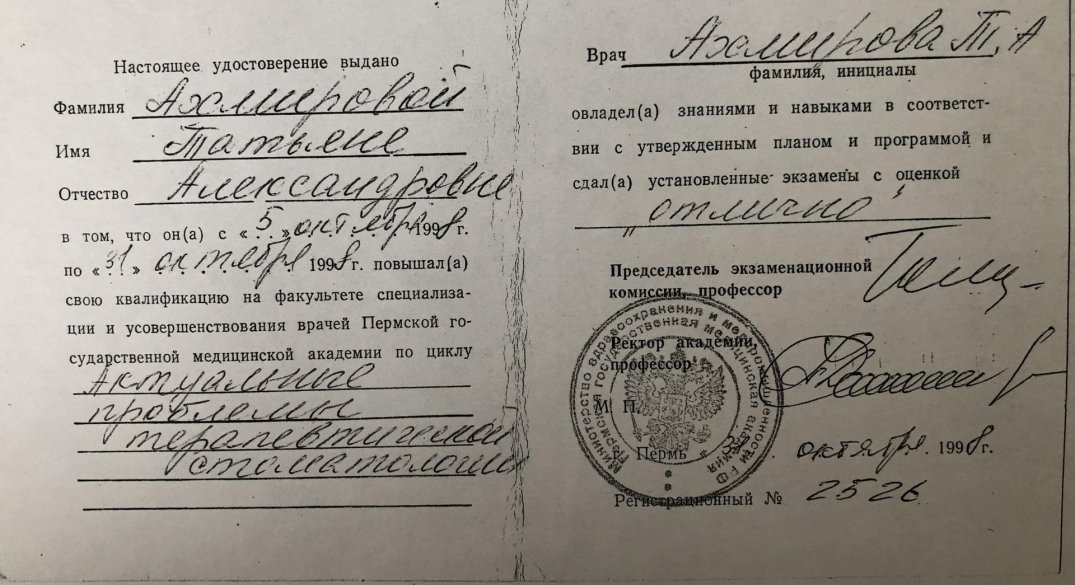 Настоящее удостоверение выдано
Фамилия Ахмировой
Имя Татьяне
Отчество Александровне
в том, что он(а) с «5» октября 1998 г.
по «31» октября 1998 г. повышал(а)
свою квалификацию на факультете специализа-
ции и усовершенствования врачей Пермской го-
сударственной медицинской академии по циклу
Актуальные
проблемы
терапевтической
стоматологии
Врач Ахмирова Т. А
фамилия, инициалы
овладел(а) знаниями и навыками в соответст-
вии с утвержденным планом и программой и
сдал(а) установленные экзамены с оценкой
„отлично"
Председатель экзаменационной
комиссии, профессор
Ректор академии,
профессор
М. П.
Министерство здравоохранения и медпромышленности РФ
Пермская государственная медицинская академия
г. Пермь октября 1998 г.
Регистрационный № 2526